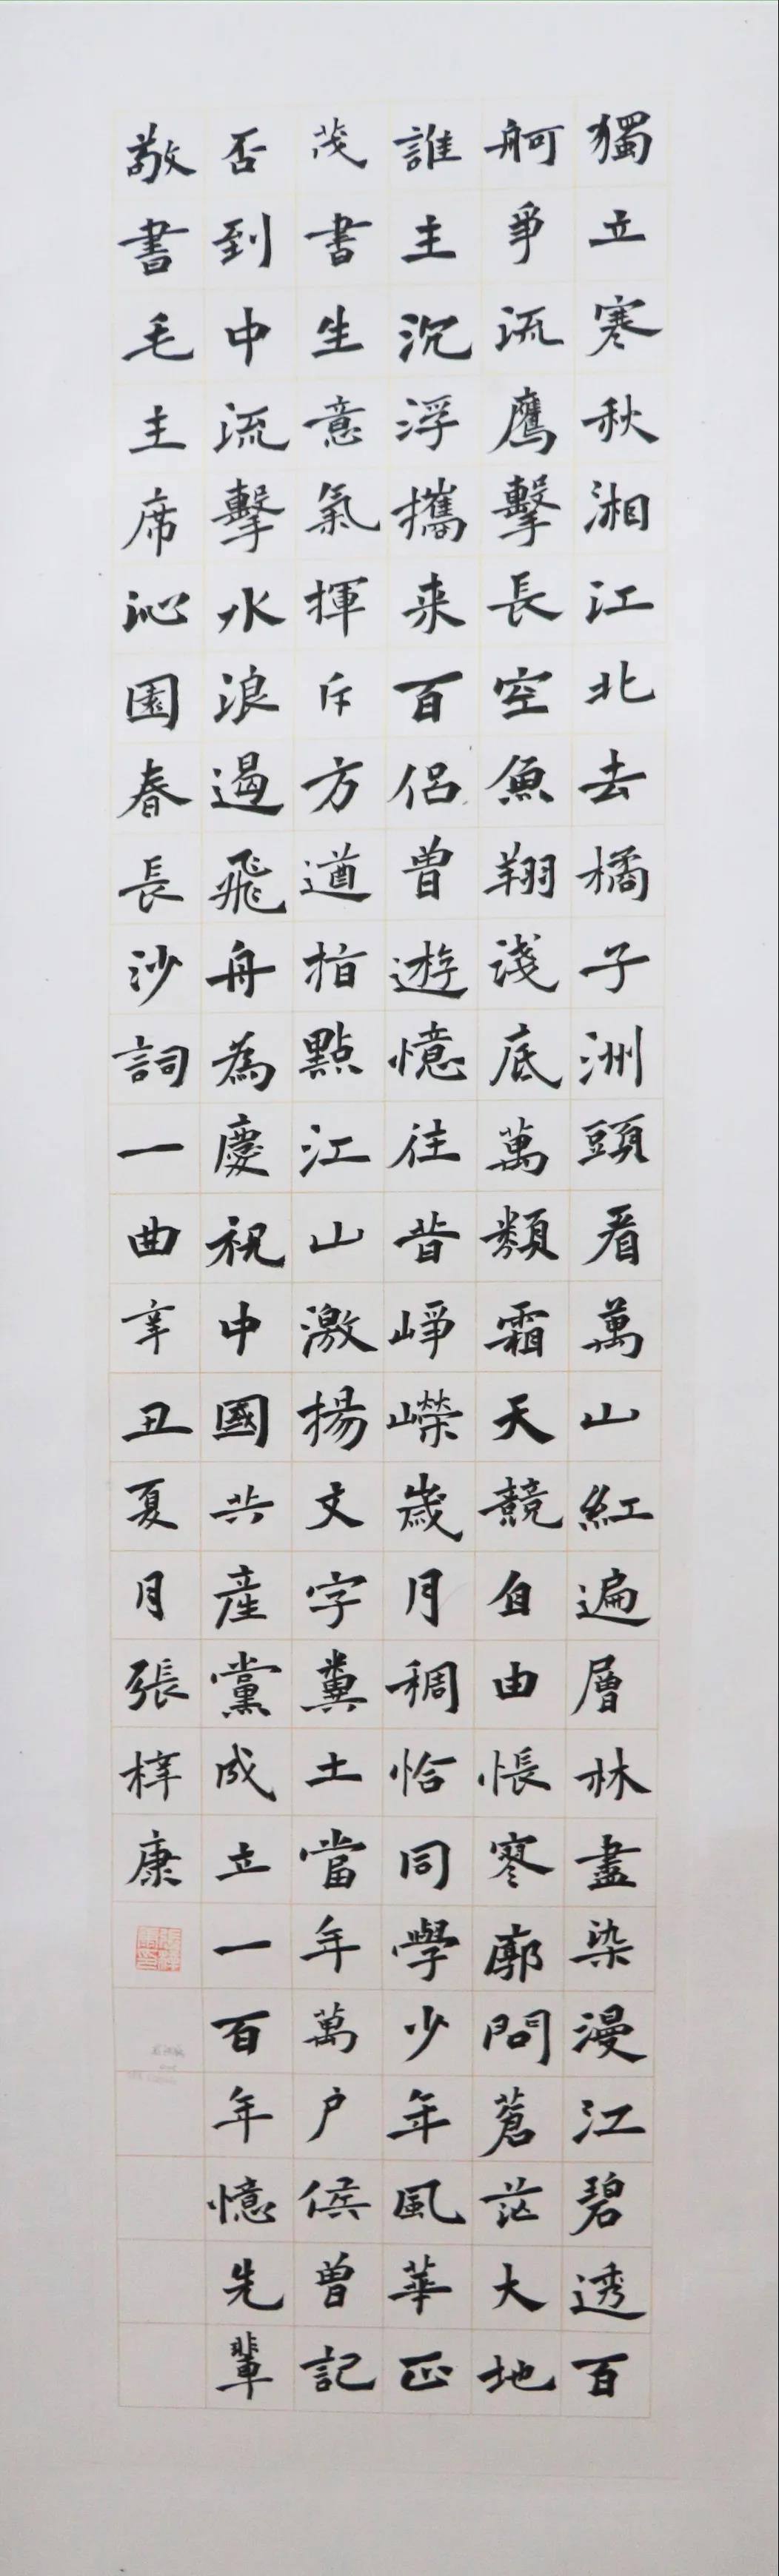 獨立寒秋湘江北去橘子洲頭看萬山紅遍層林盡染漫江碧透百
舸爭流鷹擊長空魚翔淺底萬類霜天競自由悵寥廓問蒼茫大地
誰主沉浮攜来百侣曾遊憶往昔崢嶸歲月稠恰同學少年風華正
茂書生意氣揮斥方遒指點江山激揚文字糞土當年萬户侯曾記
否到中流擊水浪遏飛舟為慶祝中國共產黨成立一百年憶先輩
敬書毛主席沁園春長沙詞一曲辛丑夏月張梓康